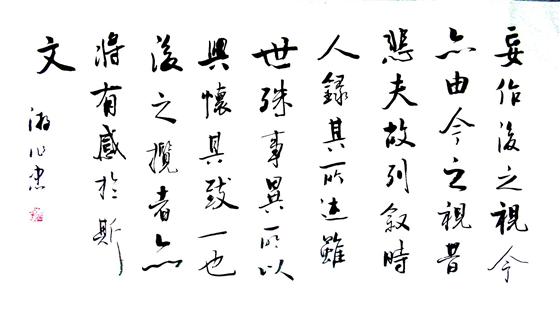 妄作後之視今
亦由今之視昔
悲夫故列敘時
人録其所述雖
世殊事異所以
興懷其致一也
後之攬者亦
將有感於斯
文